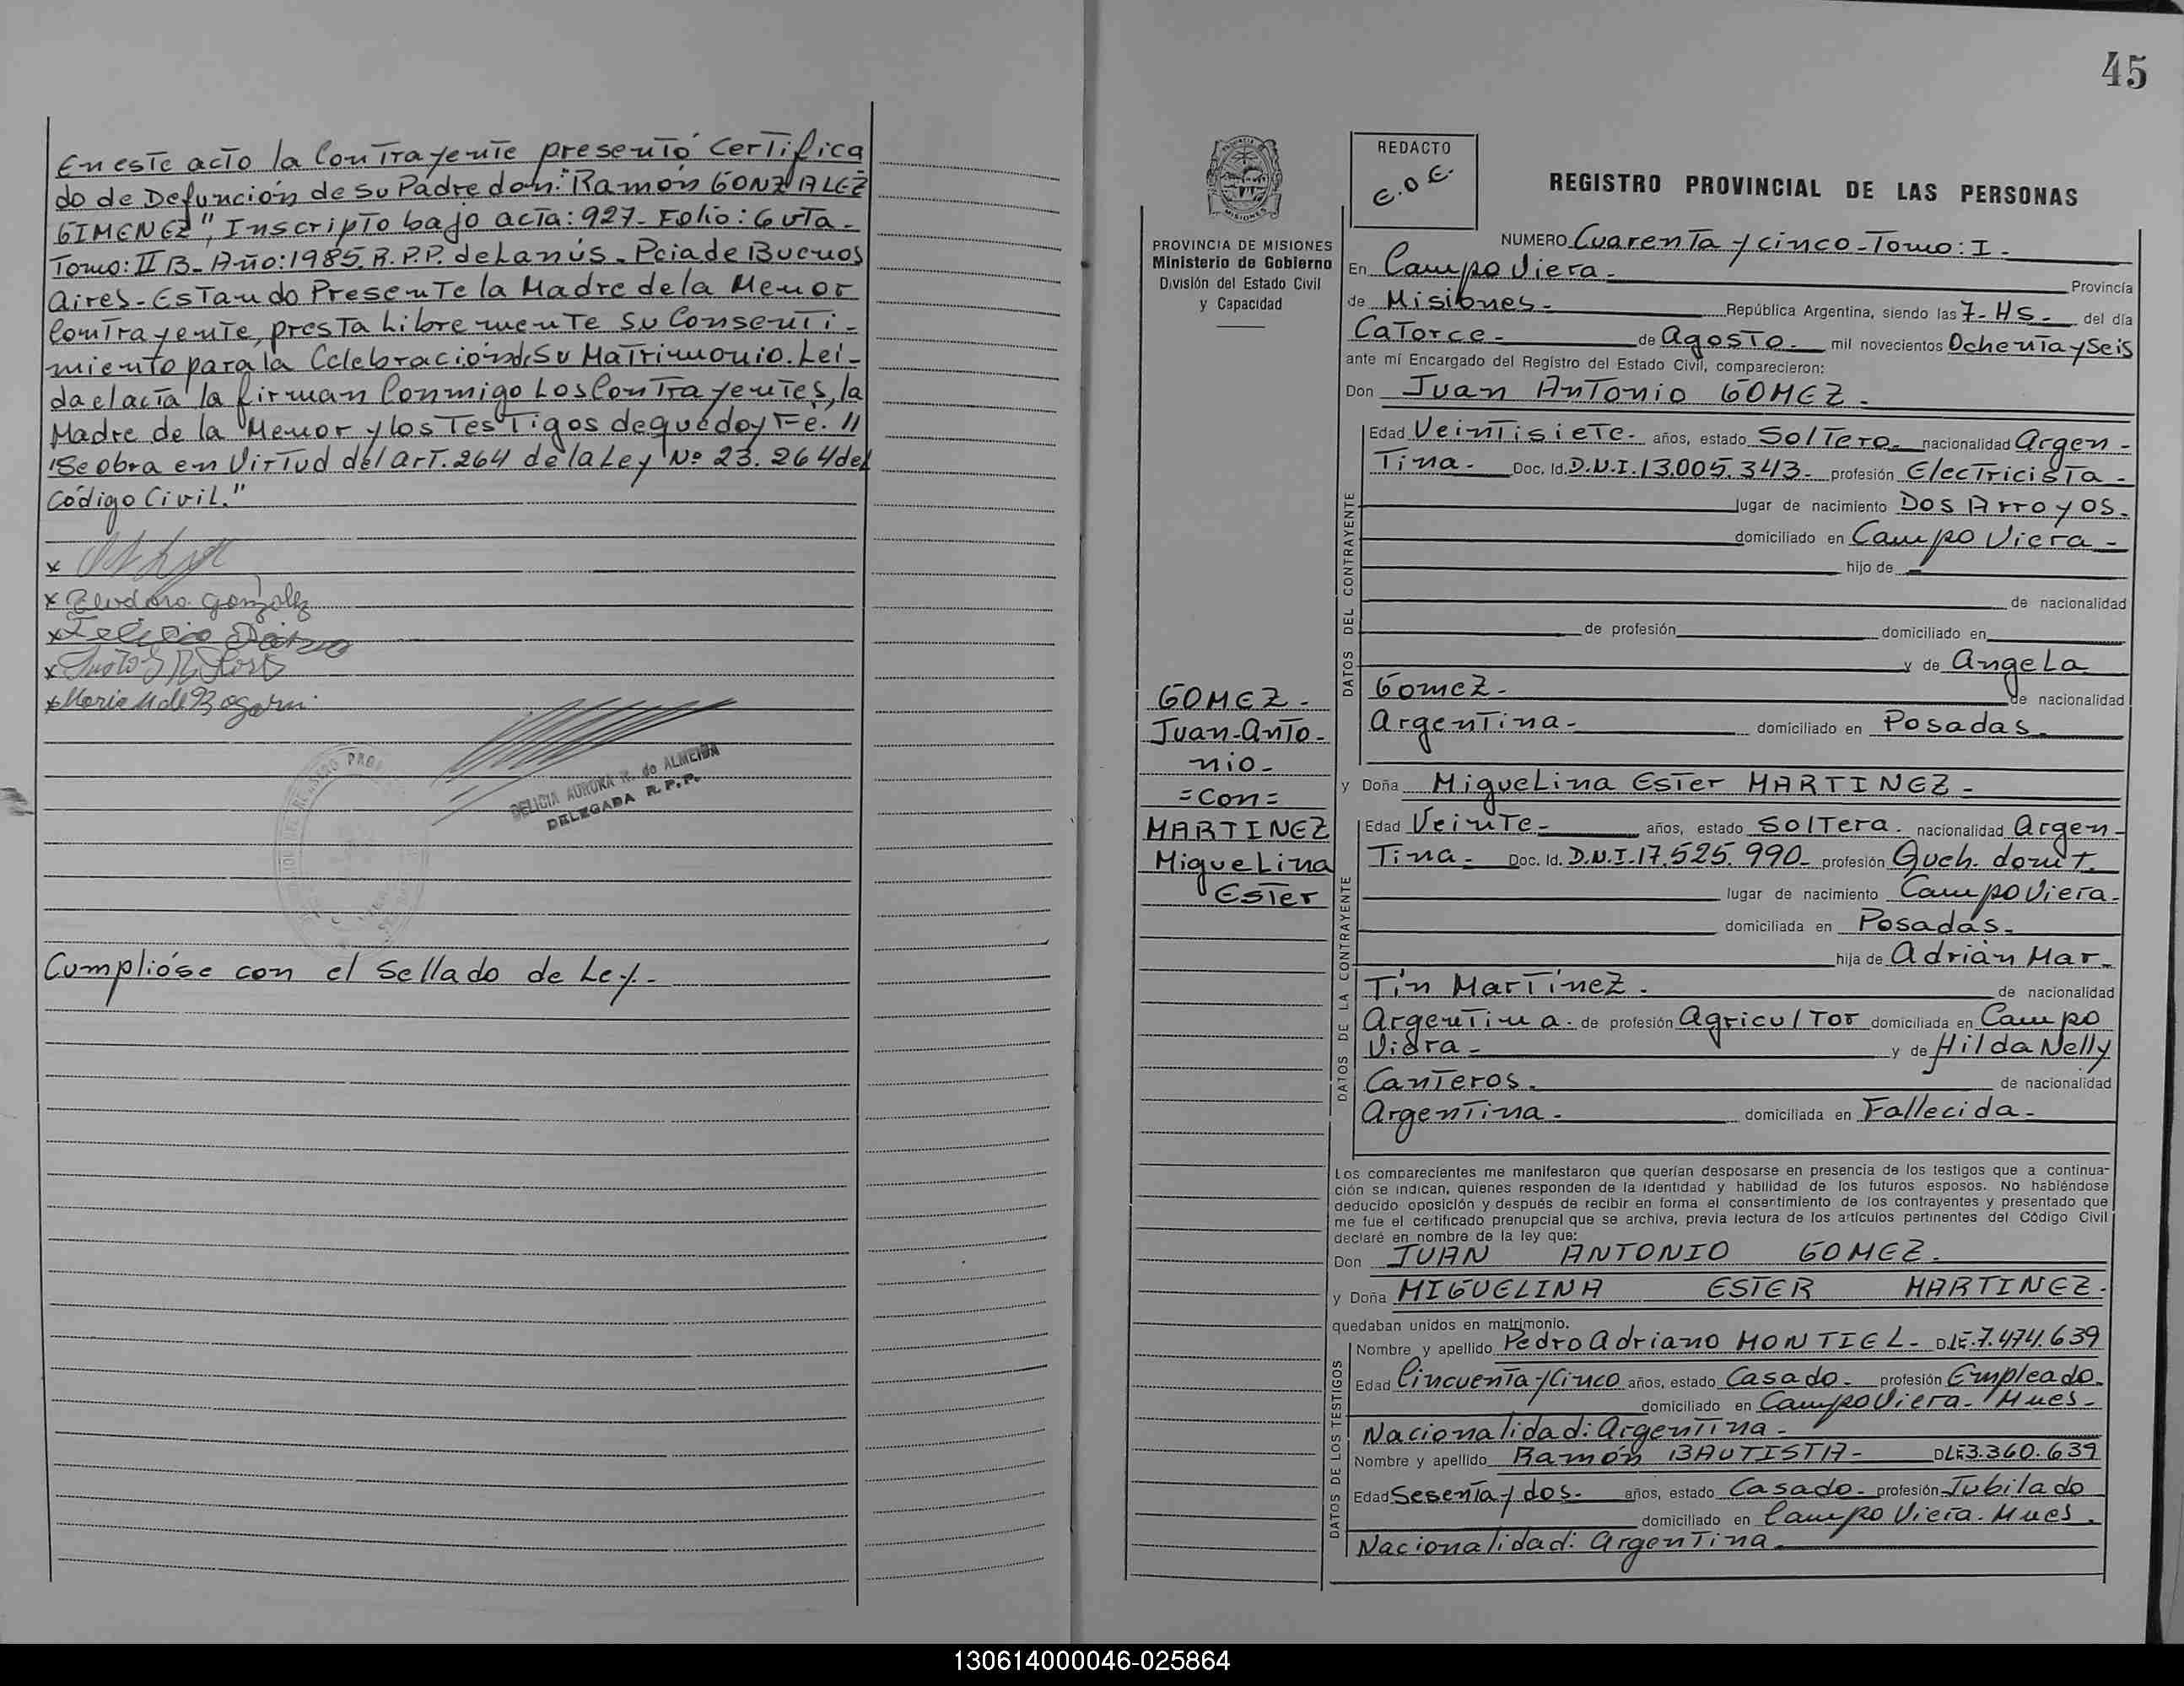 En este acto la Contrayente presentó Certifica
do de Defunción de su Padre don: "Ramón GONZALEZ
GIMENEZ", Inscripto bajo acta: 927- Folio: Guta-
Tomo: II B- Año: 1985. R.P.P. de Lanús. Pcia de Buenos
Aires- Estando Presente la Madre de la Menor
Contrayente, presta Libremente su Consenti-
miento para la Celebración de su Matrimonio. Lei-
da el acta la firman Conmigo Los Contrayentes, la
Madre de la Menor y los Testigos de que doy Fé. //
"Se obra en Virtud del art. 264 de la Ley Nº 23.264 del
Código Civil."
x
x Teodora González
x
x
x Maria M de Bogarin
DELICIA AURORA R. de ALMEIDA
DELEGADA R.P.P.
Cumplióse con el Sellado de Ley.-
45
MISIONES
PROVINCIA DE MISIONES
Ministerio de Gobierno
División del Estado Civil
y Capacidad
REDACTO
E.O.E.
REGISTRO PROVINCIAL DE LAS PERSONAS
GOMEZ-
Juan-Anto-
nio-
=Con=
MARTINEZ
Miguelina
Ester
NUMERO Cuarenta y cinco-Tomo: I-
En Campo Viera- Provincia
de Misiones- República Argentina, siendo las 7-HS- del día
Catorce- de Agosto- mil novecientos Ochenta y Seis
ante mí Encargado del Registro del Estado Civil, comparecieron:
Don Juan Antonio GOMEZ-
DATOS DEL CONTRAYENTE
Edad Veintisiete- años, estado Soltero- nacionalidad Argen-
tina- Doc. Id. D.N.I. 13.005.343- profesión Electricista-
lugar de nacimiento Dos Arroyos-
domiciliado en Campo Viera-
hijo de -
de nacionalidad
de profesión domiciliado en
y de Angela
Gomez- de nacionalidad
Argentina- domiciliado en Posadas-
y Doña Miguelina Ester MARTINEZ-
DATOS DE LA CONTRAYENTE
Edad Veinte- años, estado Soltera- nacionalidad Argen-
tina- Doc. Id. D.N.I. 17.525.990- profesión Queh. domt.
lugar de nacimiento Campo Viera-
domiciliada en Posadas-
hija de Adrián Mar-
tín Martínez- de nacionalidad
Argentina- de profesión Agricultor domiciliada en Campo
Viera- y de Hilda Nelly
Canteros- de nacionalidad
Argentina- domiciliada en Fallecida-
Los comparecientes me manifestaron que querían desposarse en presencia de los testigos que a continua-
ción se indican, quienes responden de la identidad y habilidad de los futuros esposos. No habiéndose
deducido oposición y después de recibir en forma el consentimiento de los contrayentes y presentado que
me fue el certificado prenupcial que se archiva, previa lectura de los artículos pertinentes del Código Civil
declaré en nombre de la ley que:
Don JUAN ANTONIO GOMEZ-
y Doña MIGUELINA ESTER MARTINEZ-
quedaban unidos en matrimonio.
DATOS DE LOS TESTIGOS
Nombre y apellido Pedro Adriano MONTIEL- DLE-7.474.639
Edad Cincuenta y Cinco años, estado Casado- profesión Empleado-
domiciliado en Campo Viera- Mnes-
Nacionalidad: Argentina-
Nombre y apellido Ramón BAUTISTA- DLE3.360.639
Edad Sesenta y dos- años, estado Casado- profesión Jubilado
domiciliado en Campo Viera- Mnes.
Nacionalidad: Argentina-
130614000046-025864